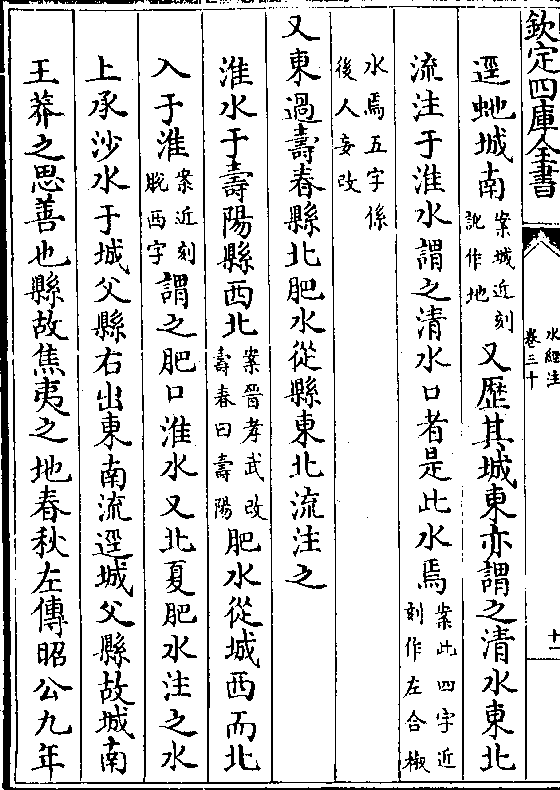 欽定四庫全書
水經注
卷三十
十一
逕虵城南案城近刻訛作地又歷其城東亦謂之清水東北
流注于淮水謂之清水口者是此水焉案此四字近刻作左合椒
水焉五字係後人妄改
又東過壽春縣北肥水從縣東北流注之
淮水于壽陽縣西北案晉孝武改壽春曰壽陽肥水從城西而北
入于淮案近刻脫西字謂之肥口淮水又北夏肥水注之水
上承沙水于城父縣右出東南流逕城父縣故城南
王莽之思善也縣故焦夷之地春秋左傳昭公九年